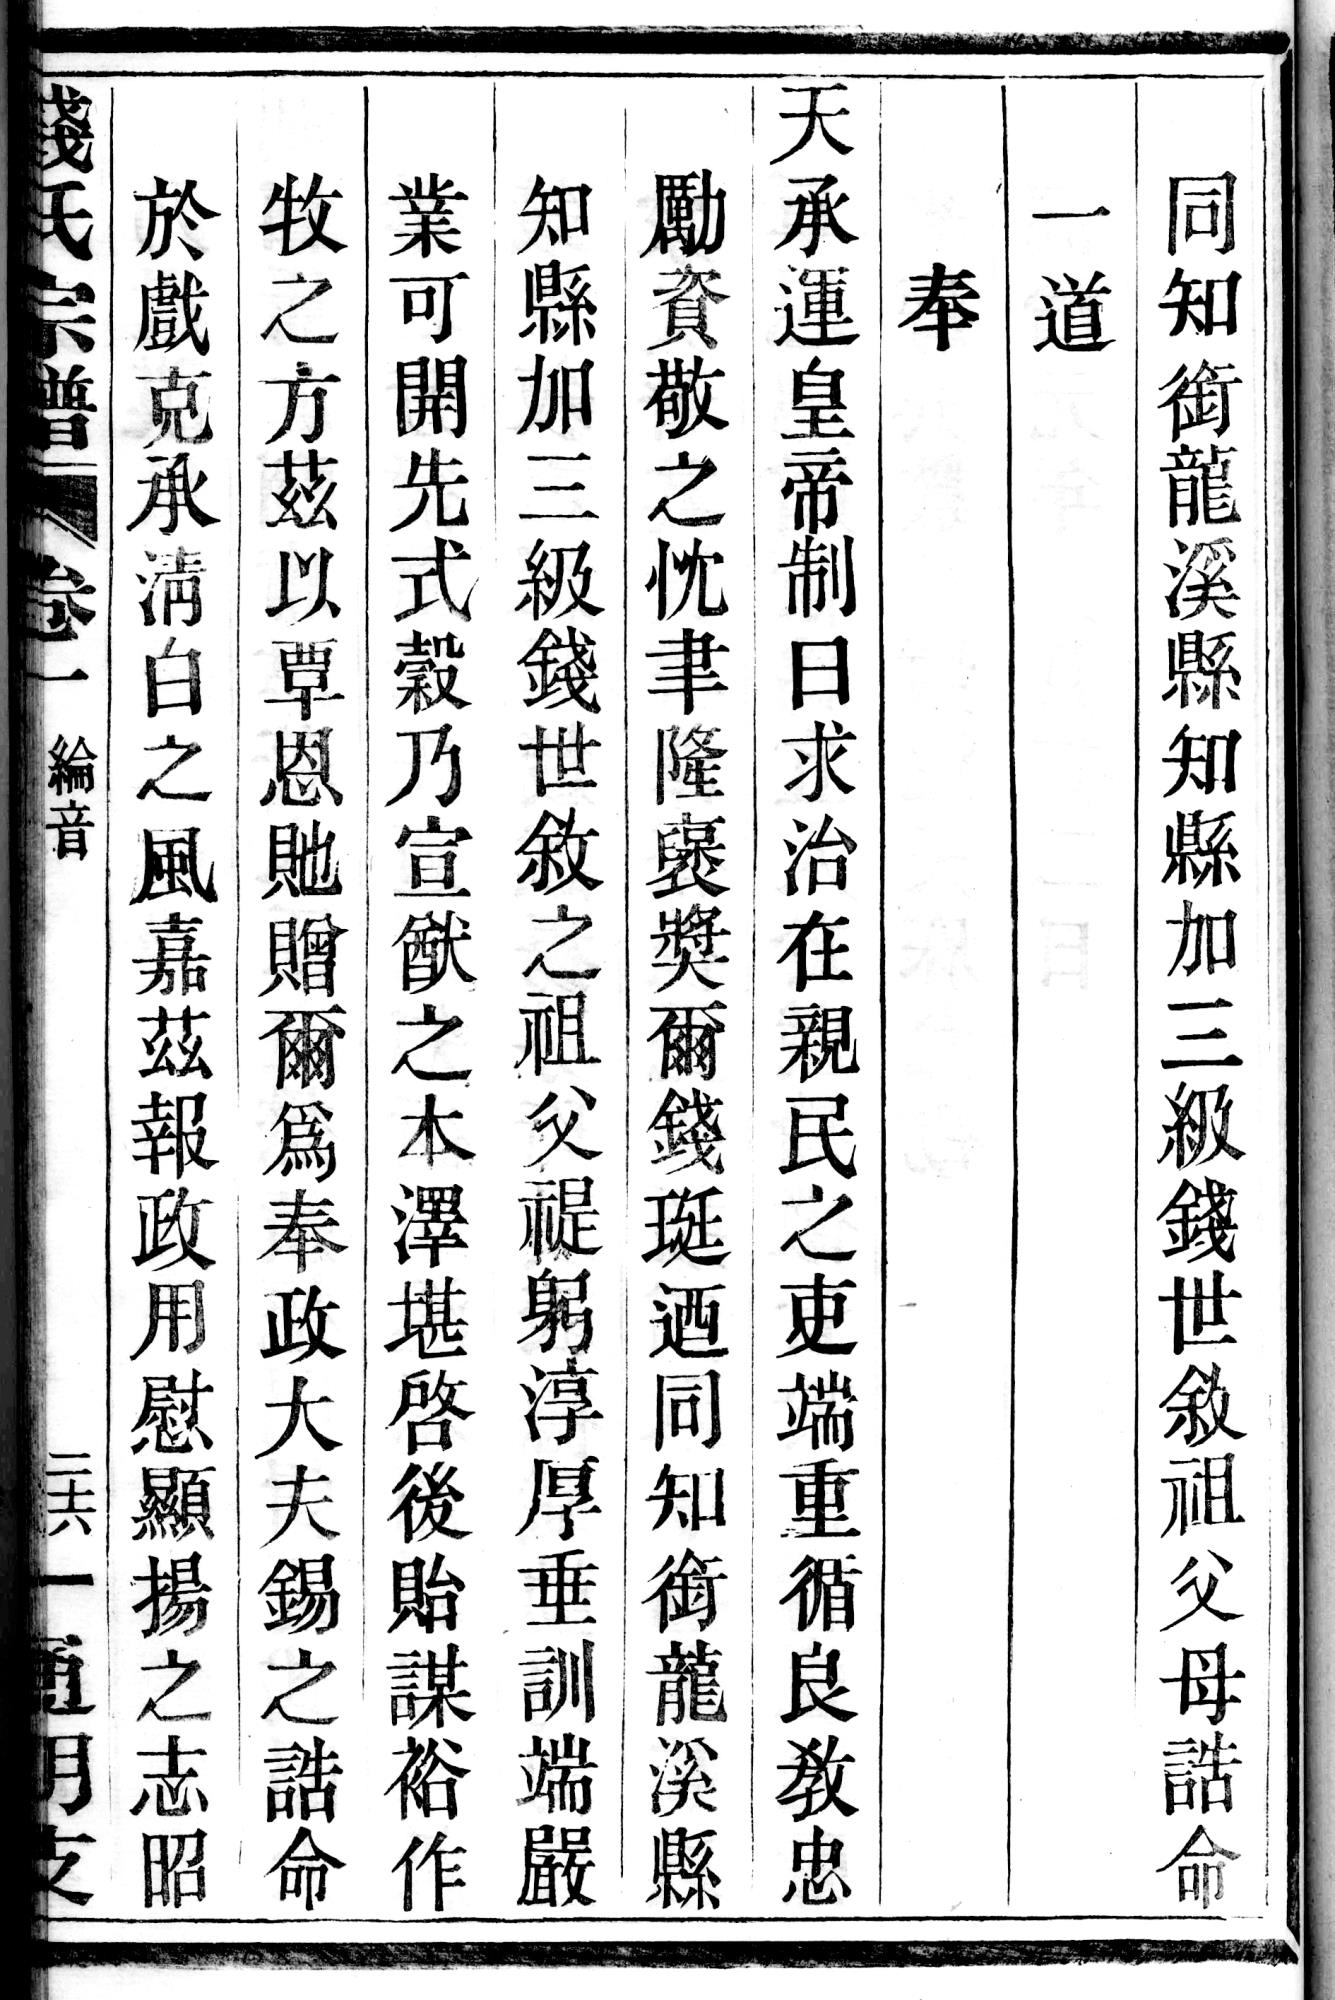 同知銜龍溪縣知縣加三級錢世敘祖父母誥命
一道
奉
天承運皇帝制曰求治在親民之吏端重循良敎忠
勵資敬之忱聿隆襃奬爾錢珽迺同知銜龍溪縣
知縣加三級錢世敘之祖父禔躬淳厚垂訓端嚴
業可開先式穀乃宣猷之本澤堪啓後貽謀裕作
牧之方茲以覃恩貤贈爾爲奉政大夫錫之誥命
於戲克承淸白之風嘉茲報政用慰顯揚之志昭
錢氏宗譜 卷一 綸音 二六一 通明支